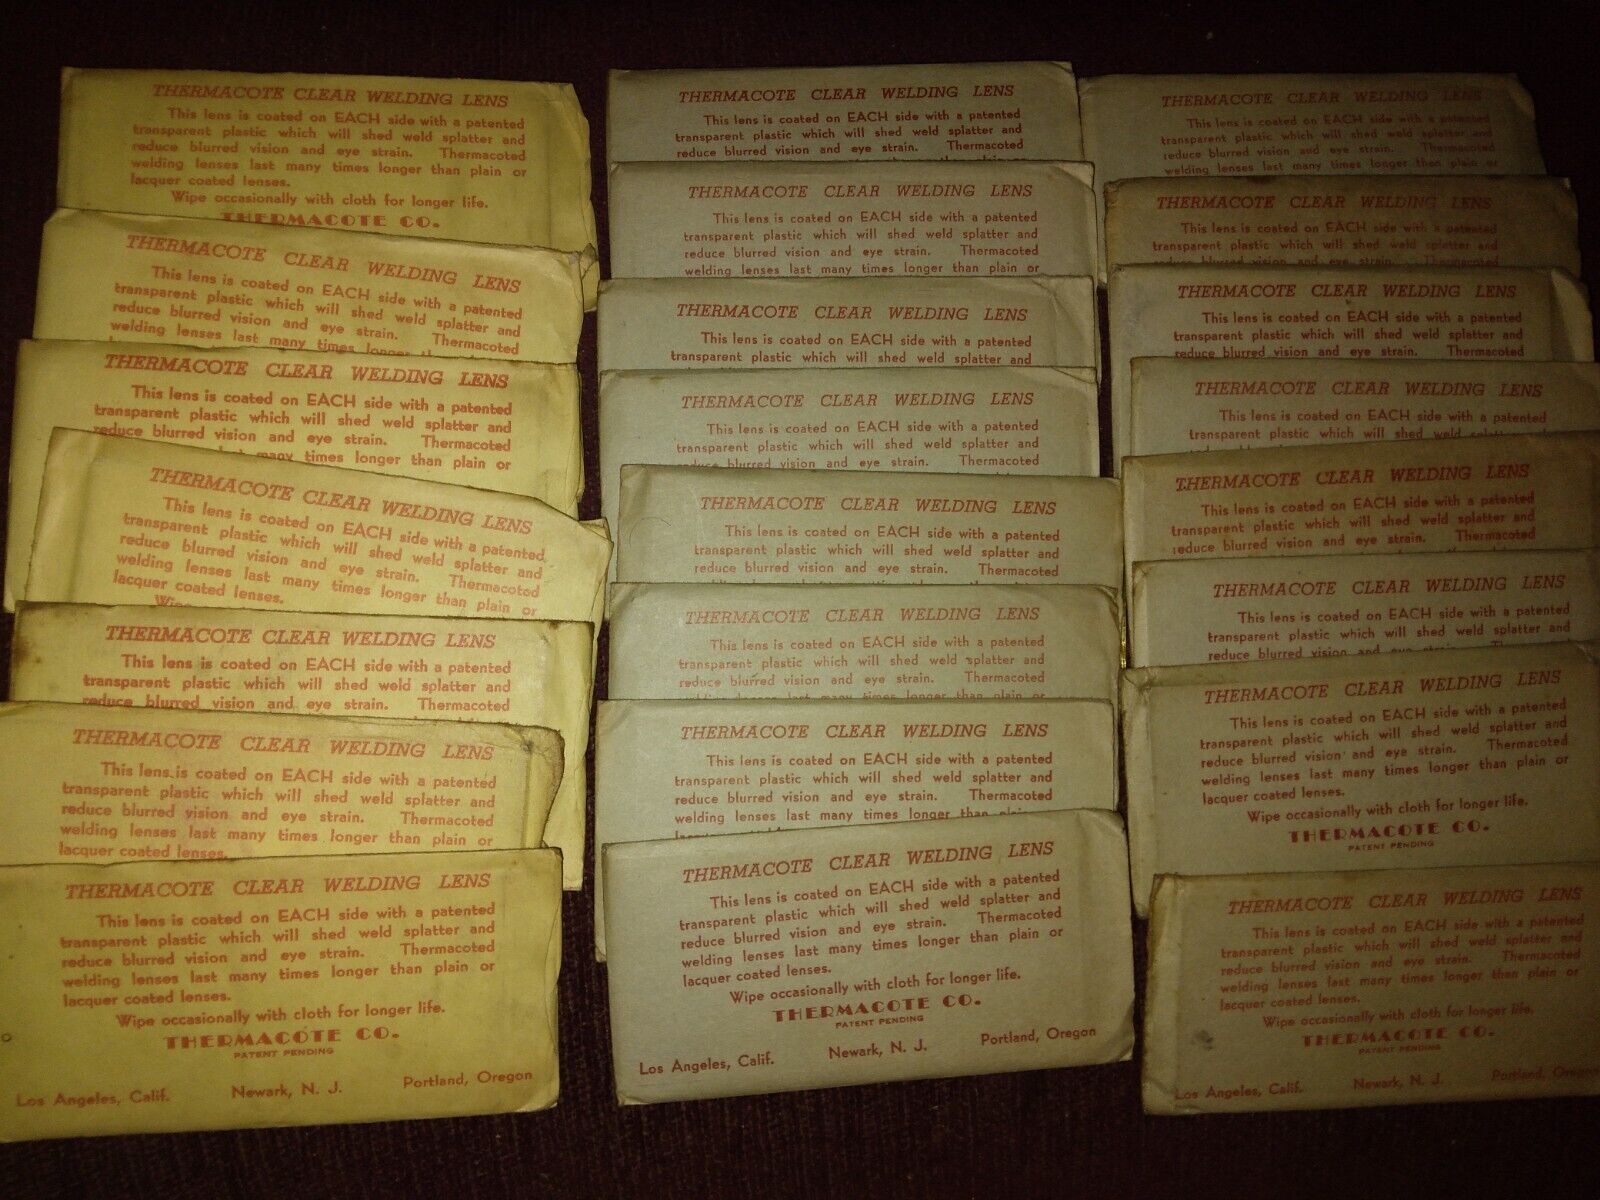 THERMACOTE CLEAR WELDING LENS
This lens is coated on EACH side with a patented
transparent plastic which will shed weld splatter and
reduce blurred vision and eye strain. Thermacoted
welding lenses last many times longer than plain or
lacquer coated lenses.
Wipe occasionally with cloth for longer life.
THERMACOTE CO.
THERMACOTE CLEAR WELDING LENS
This lens is coated on EACH side with a patented
transparent plastic which will shed weld splatter and
reduce blurred vision and eye strain. Thermacoted
welding lenses last many times longer
THERMACOTE CLEAR WELDING LENS
This lens is coated on EACH side with a patented
transparent plastic which will shed weld splatter and
reduce blurred vision and eye strain. Thermacoted
many times longer than plain or
THERMACOTE CLEAR WELDING LENS
This lens is coated on EACH side with a patented
transparent plastic which will shed weld splatter and
reduce blurred vision and eye strain. Thermacoted
welding lenses last many times longer than plain or
lacquer coated lenses.
Wipe
THERMACOTE CLEAR WELDING LENS
This lens is coated on EACH side with a patented
transparent plastic which will shed weld splatter and
reduce blurred vision and eye strain. Thermacoted
THERMACOTE CLEAR WELDING LENS
This lens is coated on EACH side with a patented
transparent plastic which will shed weld splatter and
reduce blurred vision and eye strain. Thermacoted
welding lenses last many times longer than plain or
lacquer coated lenses.
THERMACOTE CLEAR WELDING LENS
This lens is coated on EACH side with a patented
transparent plastic which will shed weld splatter and
reduce blurred vision and eye strain. Thermacoted
welding lenses last many times longer than plain or
lacquer coated lenses.
Wipe occasionally with cloth for longer life.
THERMACOTE CO.
PATENT PENDING
Los Angeles, Calif. Newark, N. J. Portland, Oregon
THERMACOTE CLEAR WELDING LENS
This lens is coated on EACH side with a patented
transparent plastic which will shed weld splatter and
reduce blurred vision and eye strain. Thermacoted
THERMACOTE CLEAR WELDING LENS
This lens is coated on EACH side with a patented
transparent plastic which will shed weld splatter and
reduce blurred vision and eye strain. Thermacoted
welding lenses last many times longer than plain or
THERMACOTE CLEAR WELDING LENS
This lens is coated on EACH side with a patented
transparent plastic which will shed weld splatter and
THERMACOTE CLEAR WELDING LENS
This lens is coated on EACH side with a patented
transparent plastic which will shed weld splatter and
reduce blurred vision and eye strain. Thermacoted
THERMACOTE CLEAR WELDING LENS
This lens is coated on EACH side with a patented
transparent plastic which will shed weld splatter and
reduce blurred vision and eye strain. Thermacoted
THERMACOTE CLEAR WELDING LENS
This lens is coated on EACH side with a patented
transparent plastic which will shed weld splatter and
reduce blurred vision and eye strain. Thermacoted
welding lenses last many times longer than plain or
THERMACOTE CLEAR WELDING LENS
This lens is coated on EACH side with a patented
transparent plastic which will shed weld splatter and
reduce blurred vision and eye strain. Thermacoted
welding lenses last many times longer than plain or
THERMACOTE CLEAR WELDING LENS
This lens is coated on EACH side with a patented
transparent plastic which will shed weld splatter and
reduce blurred vision and eye strain. Thermacoted
welding lenses last many times longer than plain or
lacquer coated lenses.
Wipe occasionally with cloth for longer life.
THERMACOTE CO.
PATENT PENDING
Los Angeles, Calif. Newark, N. J. Portland, Oregon
THERMACOTE CLEAR WELDING LENS
This lens is coated on EACH side with a patented
transparent plastic which will shed weld splatter and
reduce blurred vision and eye strain. Thermacoted
welding lenses last many times longer than plain or
THERMACOTE CLEAR WELDING LENS
This lens is coated on EACH side with a patented
transparent plastic which will shed weld splatter and
reduce blurred vision and eye strain. Thermacoted
THERMACOTE CLEAR WELDING LENS
This lens is coated on EACH side with a patented
transparent plastic which will shed weld splatter and
reduce blurred vision and eye strain. Thermacoted
THERMACOTE CLEAR WELDING LENS
This lens is coated on EACH side with a patented
transparent plastic which will shed weld splatter
THERMACOTE CLEAR WELDING LENS
This lens is coated on EACH side with a patented
transparent plastic which will shed weld splatter and
reduce blurred vision and eye strain. Thermacoted
THERMACOTE CLEAR WELDING LENS
This lens is coated on EACH side with a patented
transparent plastic which will shed weld splatter and
reduce blurred vision and eye strain.
THERMACOTE CLEAR WELDING LENS
This lens is coated on EACH side with a patented
transparent plastic which will shed weld splatter and
reduce blurred vision and eye strain. Thermacoted
welding lenses last many times longer than plain or
lacquer coated lenses.
Wipe occasionally with cloth for longer life.
THERMACOTE CO.
PATENT PENDING
THERMACOTE CLEAR WELDING LENS
This lens is coated on EACH side with a patented
transparent plastic which will shed weld splatter and
reduce blurred vision and eye strain. Thermacoted
welding lenses last many times longer than plain or
lacquer coated lenses.
Wipe occasionally with cloth for longer life.
THERMACOTE CO.
PATENT PENDING
Los Angeles, Calif. Newark, N. J. Portland, Oregon